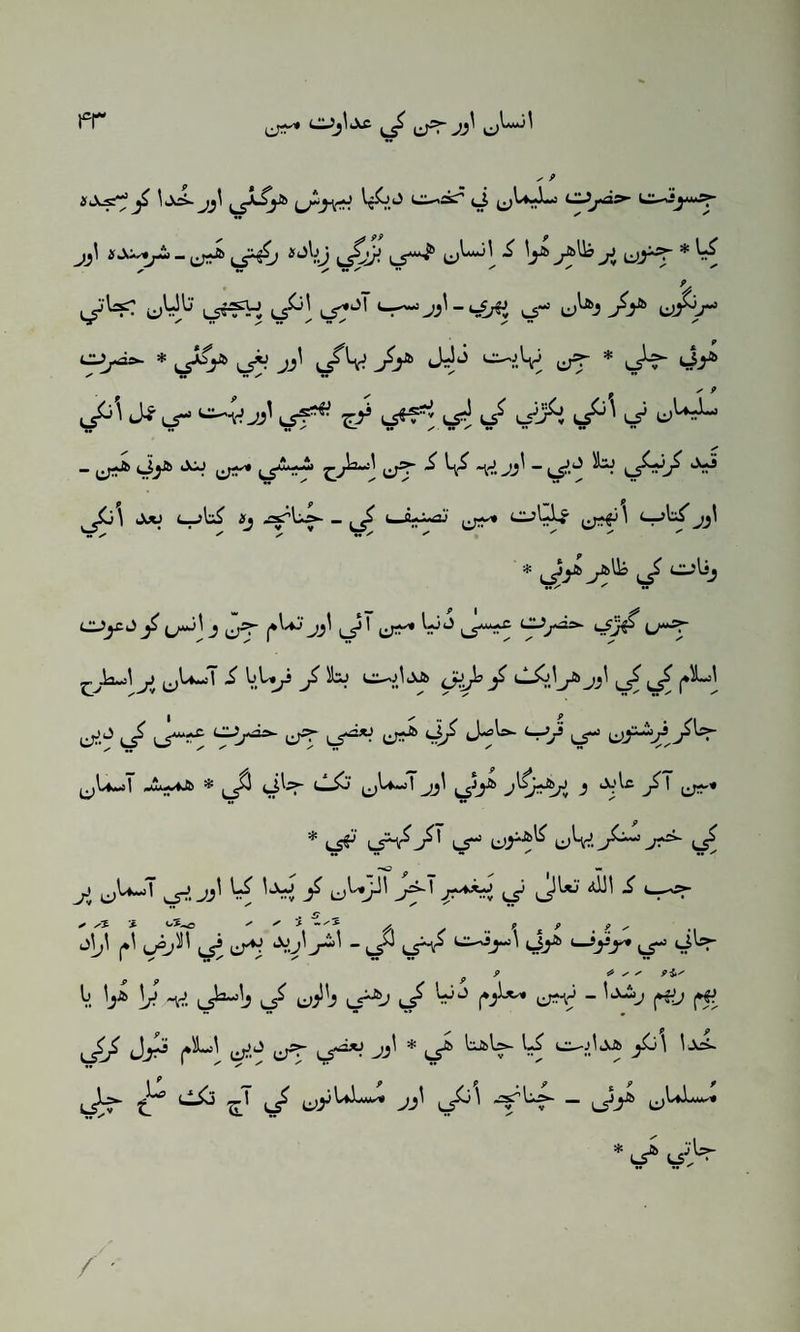 انسان اور جن کي عداوت مین
جسوقت حضرت سلیمان ني تخت دیکها بیهوش هوگئي اور خدا کو سجده
کیا * جنون پر ظاهر هوا که انسان همسي بزرگي زیاده رکهتي هین - شرمنده اور
سرنگون هوکر وهان سي پهري - اور سب آدمي انکي پیچهي تالیان بجاتي
هوئي چلي * جن نهایت ذلیل هوکر بهاگي اور باغي هوگئي * حضرت
سلیمان ني انکي پکڑني کي لئي پیچهي فوج بهیجي اور بهت سي عمل انکي
قید کرنیکي بتلا دئي - اور یهه کها که جن اسطرح شیشي مین بند هوتي هین -
اور کتاب انهین عملیات مین تصنیف کي - چنانچه وه کتاب بعد انکي
وفات کي ظاهر هوئي *
جس گهڑي حضرت عیسی دنیا مین آئي اور تمام جن و انس کو دعوت
اسلام کي کي اور هرایک کو طریق هدایت بتلا کر فرمایا که آسمان پر اسطرح
جاکر فرشتون سي قرب حاصل کرتي هین بعضي جن حضرت عیسی کي دین
مین آکر عابد و پرهیزگار هوئي اور آسمان تک جاني لگي * همیشه آسمان
کي خبر سنکر یهان کاهنون سي آکر کهتي تهي *
جب که الله تعالی ني پیغمبر آخر الزمان کو پیدا کیا اور انهین آسمان پر
جاني سي موقوف هوئي اسوقت کهني لگي - أَشَرٌّ أُرِيدَ بِمَن في الارض أم أراد
بهم ربهم رَشَدا - نهین معلوم دنیا کي رهني والون کي واسطي یهه برا هوا یا
خدا انکو هدایت کیا چاهتا هي * اور بعضي جن دین اسلام قبول کرکي
مسلمان هوئي - چنانچه انکي اور مسلمانون کي آج تک صلح چلي
جاتي هي *